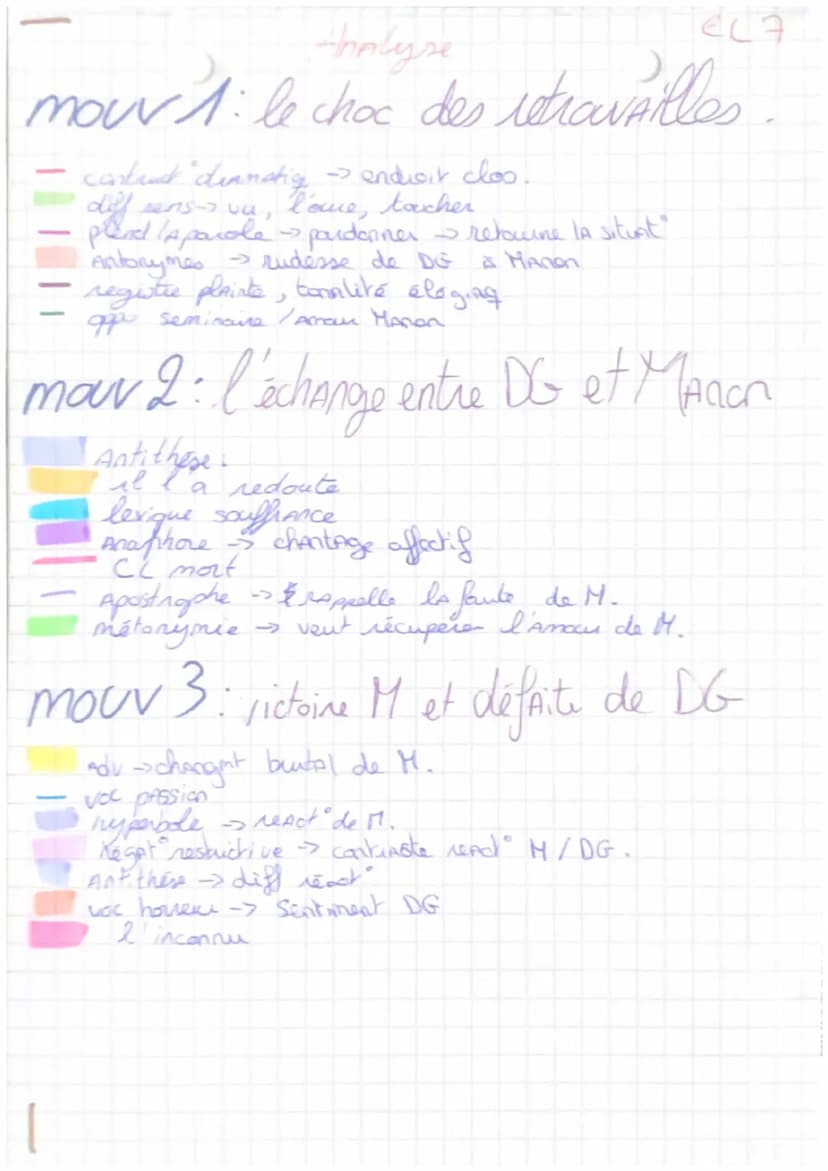 EL 7
Analyse
mouv 1: le choc des retrouvailles.
contruct° dramatiq -> endroit clos.
diff sens -> vu, l'ouïe, toucher
prend la parole -> pardonner -> retourne la situat°
Antonymes -> rudesse de DG à Manon
registre plainte, tonalité élégiaq
opp séminaire / Amour Manon
mouv 2: l'échange entre DG et Manon
Antithèse:
il l'a redouté
lexique souffrance
Anaphore -> chantage affectif
CL mort
Apostrophe -> rappelle la faute de M.
métonymie -> veut récupérer l'Amour de M.
mouv 3: victoire M et défaite de DG
Adv -> changmt brutal de M.
voc passion
hyperbole -> réact° de M.
Négat° restrictive -> contraste réact° M / DG.
Antithèse -> diff réact°
voc horreur -> Sentiment DG
l'inconnu